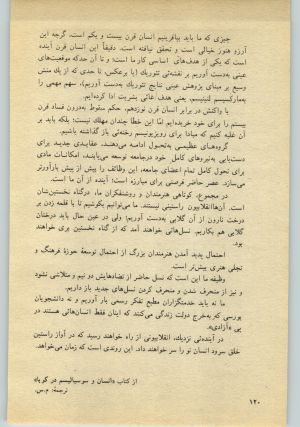 چیزی که ما باید بیافرینیم انسان قرن بیست و یکم است، گرچه این
آرزو هنوز خیالی است و تحقق نیافته است. دقیقاً این انسان قرن آینده
است که یکی از هدف‌های اساسی کار ما است؛ و تا آن حدکه موفقیت‌های
عینی به‌دست آوریم بر نقشه‌ئی تئوریک (یا برعکس، تا حدی که از یك منش
وسیع بر مبنای پژوهش عینی نتایج تئوریك به‌دست آوریم)، سهم مهمی را
به‌مارکسیسم لنینیسم، یعنی هدف غائی بشریت ادا کرده‌ایم.
با واکنش در برابر انسان قرن نوزدهم، حکم سقوط به‌درون فساد قرن
بیستم را برای خود خریده‌ایم اما این خطا چندان مهلك نیست؛ بلکه باید بر
آن غلبه کنیم که مبادا برای رویزیونیسم رخنه‌ئی باز گذاشته باشیم.
گروه‌های عظیمی به‌تحول ادامه می‌دهند، عقایدی جدید برای
دست‌یابی به‌نیروهای کامل خود درجامعه توسعه می‌یابند، امکانات مادی
برای تحول کامل تمام اعضای جامعه، این وظائف را بیش از پیش بارآورتر
می‌سازد. عصر حاضر فرصتی برای مبارزه است؛ آینده از آن ما است.
در مجموع، کوتاهی هنرمندان و روشنفکران ما، درگناه نخستین‌شان
است. آن‌هاانقلابیون راستینی نیستند. ما می‌توانیم بکوشیم تا با قلمه زدن بر
درخت نارون از آن گلابی به‌دست آوریم؛ ولی در عین حال باید درختان
گلابی هم بکاریم. نسل‌هائی خواهند آمد که از گناه نخستین بری خواهند
بود.
احتمال پدید آمدن هنرمندان بزرگ از احتمال توسعهٔ حوزهٔ فرهنگ و
تجلی هنری بیش‌تر است.
وظیفه ما این است که نسل حاضر از تضادهایش دو نیم و متلاشی نشود
و نیز از منحرف شدن و منحرف کردن نسل‌های جدید باز داریم.
ما نه باید خدمتگزاران مطیع تفکر رسمی بار آوریم و نه دانشجویان
بورسی که به‌خرج دولت زندگی می‌کنند که اینان فقط انسان‌هائی هستند در
پی «آزادی».
در آینده‌ئی نزدیك، انقلابیونی از راه خواهند رسید که در آواز راستین
خلق سرود انسان نو را سر خواهند داد. این روندی است که زمان می‌خواهد.
از کتاب «انسان و سوسیالیسم در کوبا»
ترجمهٔ: م.س.
۱۲۰